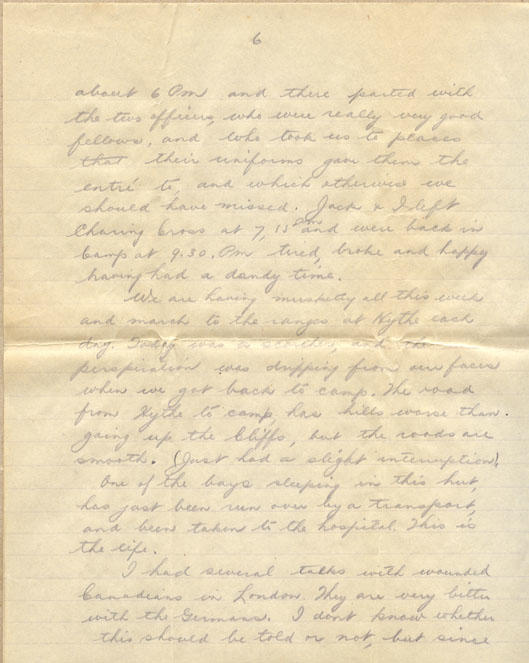 6
about 6 Pm and there parted with
the two officers, who were really very good
fellows, and who took us to places
that their uniforms gave them the
entré to, and which otherwise we
should have missed. Jack & I left
Charing Cross at 7,15 Pm and were back in
Camp at 9.30. Pm tired, broke and happy
having had a dandy time.
We are having musketry all this week
and march to the ranges at Hythe each
day. Today was a scorcher, and the
perspiration was dripping from our faces
when we got back to camp. The road
from Hythe to camp, has hills worse than
going up the Cliffs, but the roads are
smooth. (Just had a slight interruption).
One of the boys sleeping in this hut,
has just been run over by a transport,
and been taken to the hospital. This is
the life.
I had several talks with wounded
Canadians in London. They are very bitter
with the Germans. I dont know whether
this should be told or not, but since